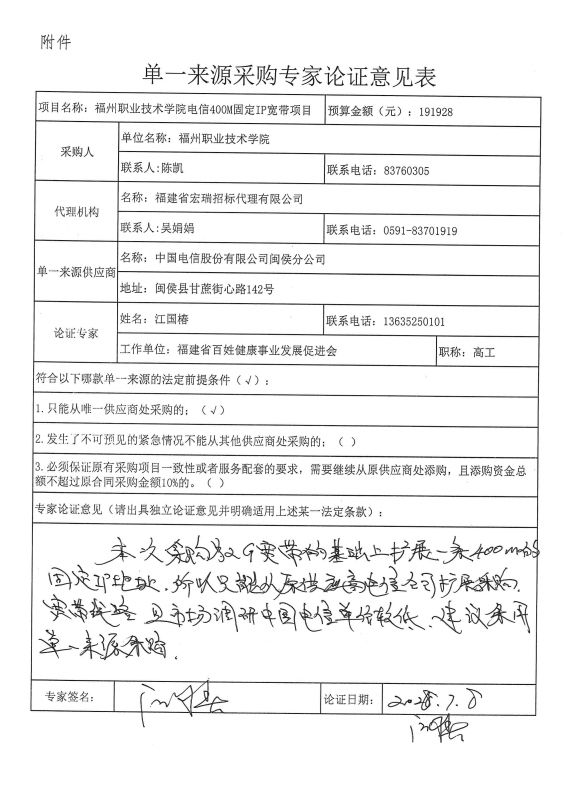 附件
单一来源采购专家论证意见表
项目名称：福州职业技术学院电信400M固定IP宽带项目 预算金额（元）：191928
采购人 单位名称：福州职业技术学院
联系人:陈凯 联系电话：83760305
代理机构 名称：福建省宏瑞招标代理有限公司
联系人:吴娟娟 联系电话：0591-83701919
单一来源供应商 名称：中国电信股份有限公司闽侯分公司
地址：闽侯县甘蔗街心路142号
论证专家 姓名：江国椿 联系电话：13635250101
工作单位：福建省百姓健康事业发展促进会 职称：高工
符合以下哪款单一来源的法定前提条件（√）：
1.只能从唯一供应商处采购的；（√）
2.发生了不可预见的紧急情况不能从其他供应商处采购的；（ ）
3.必须保证原有采购项目一致性或者服务配套的要求，需要继续从原供应商处添购，且添购资金总
额不超过原合同采购金额10%的。（ ）
专家论证意见（请出具独立论证意见并明确适用上述某一法定条款）：
本次采购 宽带的基础上扩展一条400m的
固定IP地址，所以只能从原供应商电信公司扩展采购
宽带线路 且市场调研中国电信单价较低、建议采用
单一来源采购.
专家签名：
论证日期：